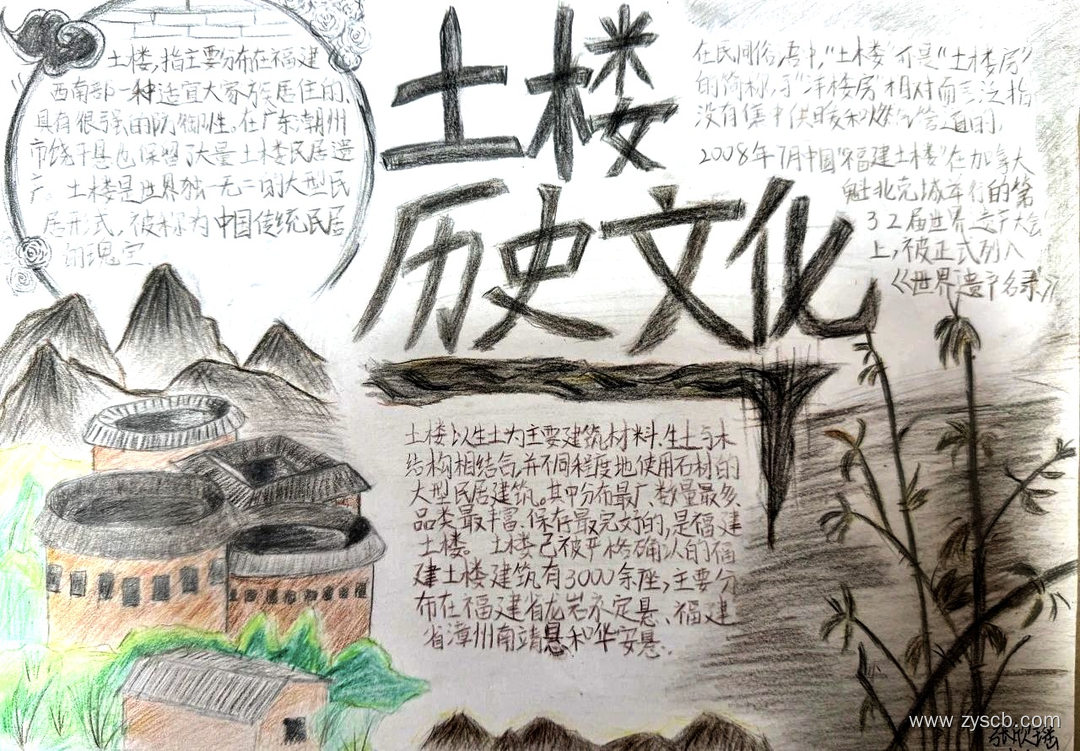 土楼
历史文化
土楼,指主要分布在福建
西南部一种适宜大家族居住的、
具有很强的防御性。在广东潮州
市饶平县也保留了大量土楼民居遗
产。土楼是世界独一无二的大型民
居形式,被称为中国传统民居
的瑰宝.
在民间俗房中,"土楼"亦是"土楼房"
的简称,与"洋楼房"相对而言泛指
没有集中供暖和燃气管道的.
2008年7月中国"福建土楼"在加拿大
魁北克城举行的第
32届世界遗产大会
上,被正式列入
《世界遗产名录》
土楼以生土为主要建筑材料、生土与木
结构相结合,并不同程度地使用石材的
大型民居建筑。其中分布最广数量最多,
品类最丰富,保存最完好的,是福建
土楼。土楼已被严格确认的福
建土楼建筑有3000余座,主要分
布在福建省龙岩永定县、福建
省漳州南靖县和华安县.
www.zyscb.com